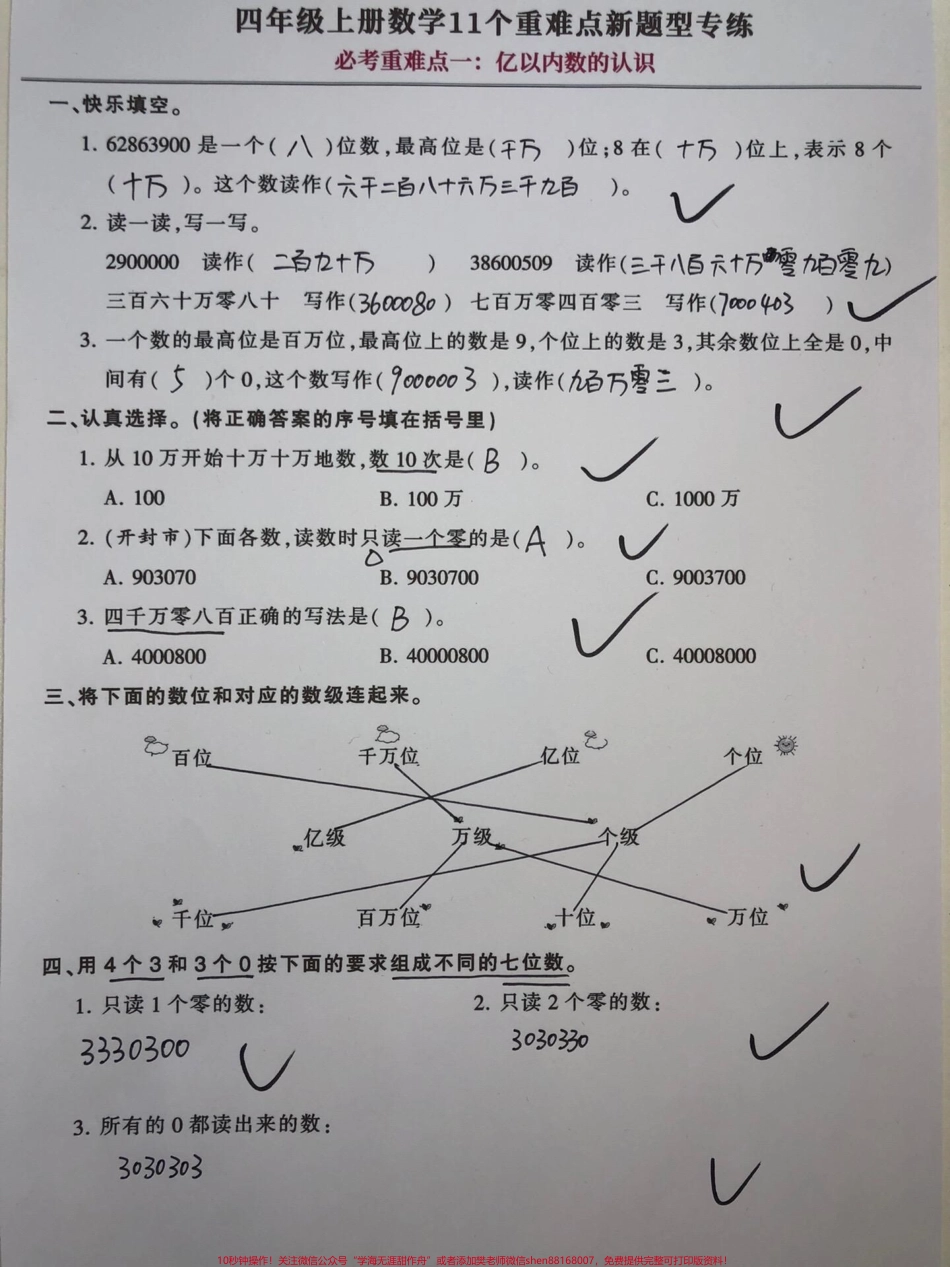 四年级上册数学11个重难点新题型专练
必考重难点一：亿以内数的认识
一、快乐填空。
1. 62863900 是一个( 八 )位数,最高位是(千万 )位;8 在( 十万 )位上,表示 8 个
( 十万 )。这个数读作(六千二百八十六万三千九百 )。
2. 读一读,写一写。
2900000 读作( 二百九十万 ) 38600509 读作(三千八百六十万零九百零九)
三百六十万零八十 写作(3600080 ) 七百万零四百零三 写作(7000403 )
3. 一个数的最高位是百万位,最高位上的数是 9,个位上的数是 3,其余数位上全是 0,中
间有( 5 )个 0,这个数写作( 9000003 ),读作(九百万零三 )。
二、认真选择。(将正确答案的序号填在括号里)
1. 从 10 万开始十万十万地数,数 10 次是( B )。
A. 100 B. 100 万 C. 1000 万
2. (开封市)下面各数,读数时只读一个零的是( A )。
A. 903070 B. 9030700 C. 9003700
3. 四千万零八百正确的写法是( B )。
A. 4000800 B. 40000800 C. 40008000
三、将下面的数位和对应的数级连起来。
百位 千万位 亿位 个位
亿级 万级 个级
千位 百万位 十位 万位
四、用 4 个 3 和 3 个 0 按下面的要求组成不同的七位数。
1. 只读 1 个零的数: 2. 只读 2 个零的数:
3330300 3030330
3. 所有的 0 都读出来的数:
3030303
10秒钟操作！关注微信公众号“学海无涯甜作舟”或者添加樊老师微信shen88168007，免费提供完整可打印版资料！